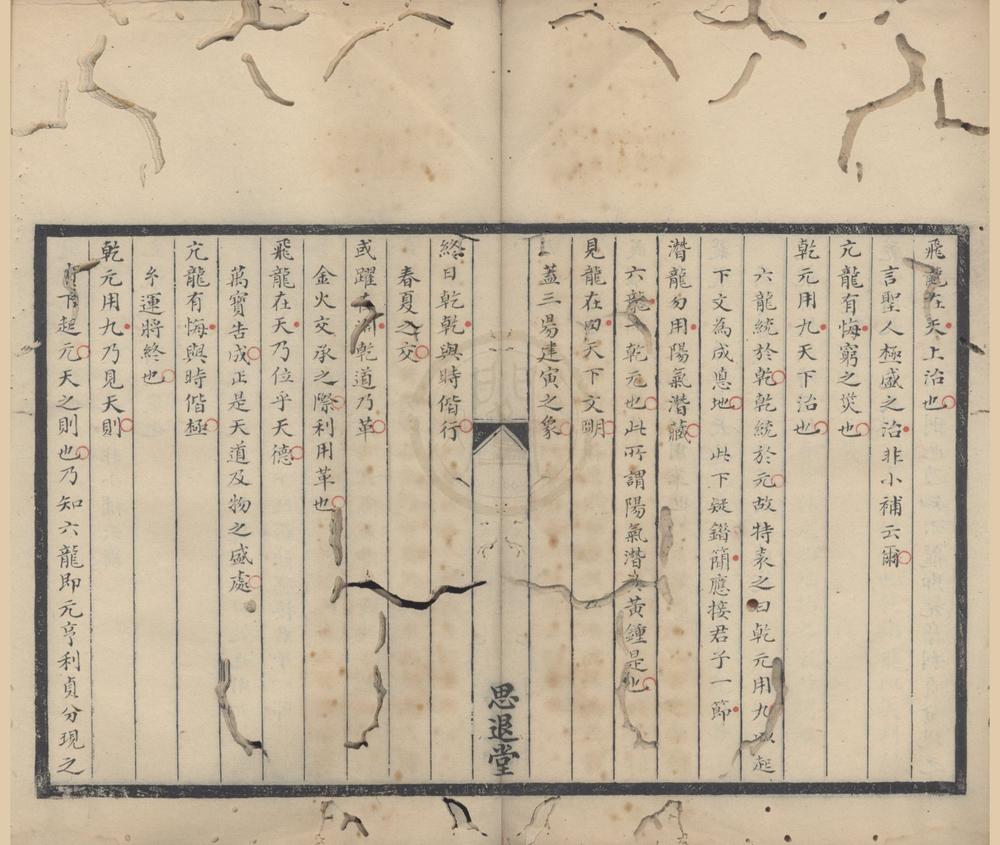 飛龍在天上治也
言聖人極盛之治非小補云爾
亢龍有悔窮之災也
乾元用九天下治也
六龍統於乾乾統於元故特表之曰乾元用九以起
下文為成息地 此下疑錯簡應接君子一節
潛龍勿用陽氣潛藏
六龍一乾元也此所謂陽氣潛黃鍾是也
見龍在田天下文明
蓋三陽建寅之象
思退堂
終日乾乾與時偕行
春夏之交
或躍在淵乾道乃革
金火交承之際利用革也
飛龍在天乃位乎天德
萬寶告成正是天道及物之盛處
亢龍有悔與時偕極
歲運將終也
乾元用九乃見天則
下起元天之則也乃知六龍即元亨利貞分現之